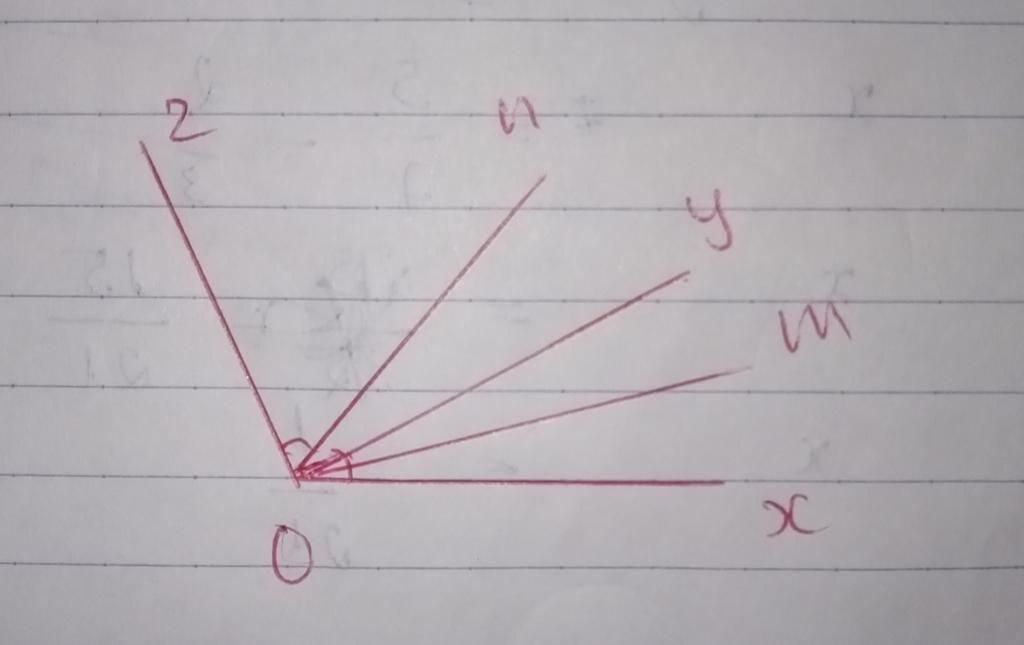 z
n
y
m
x
O